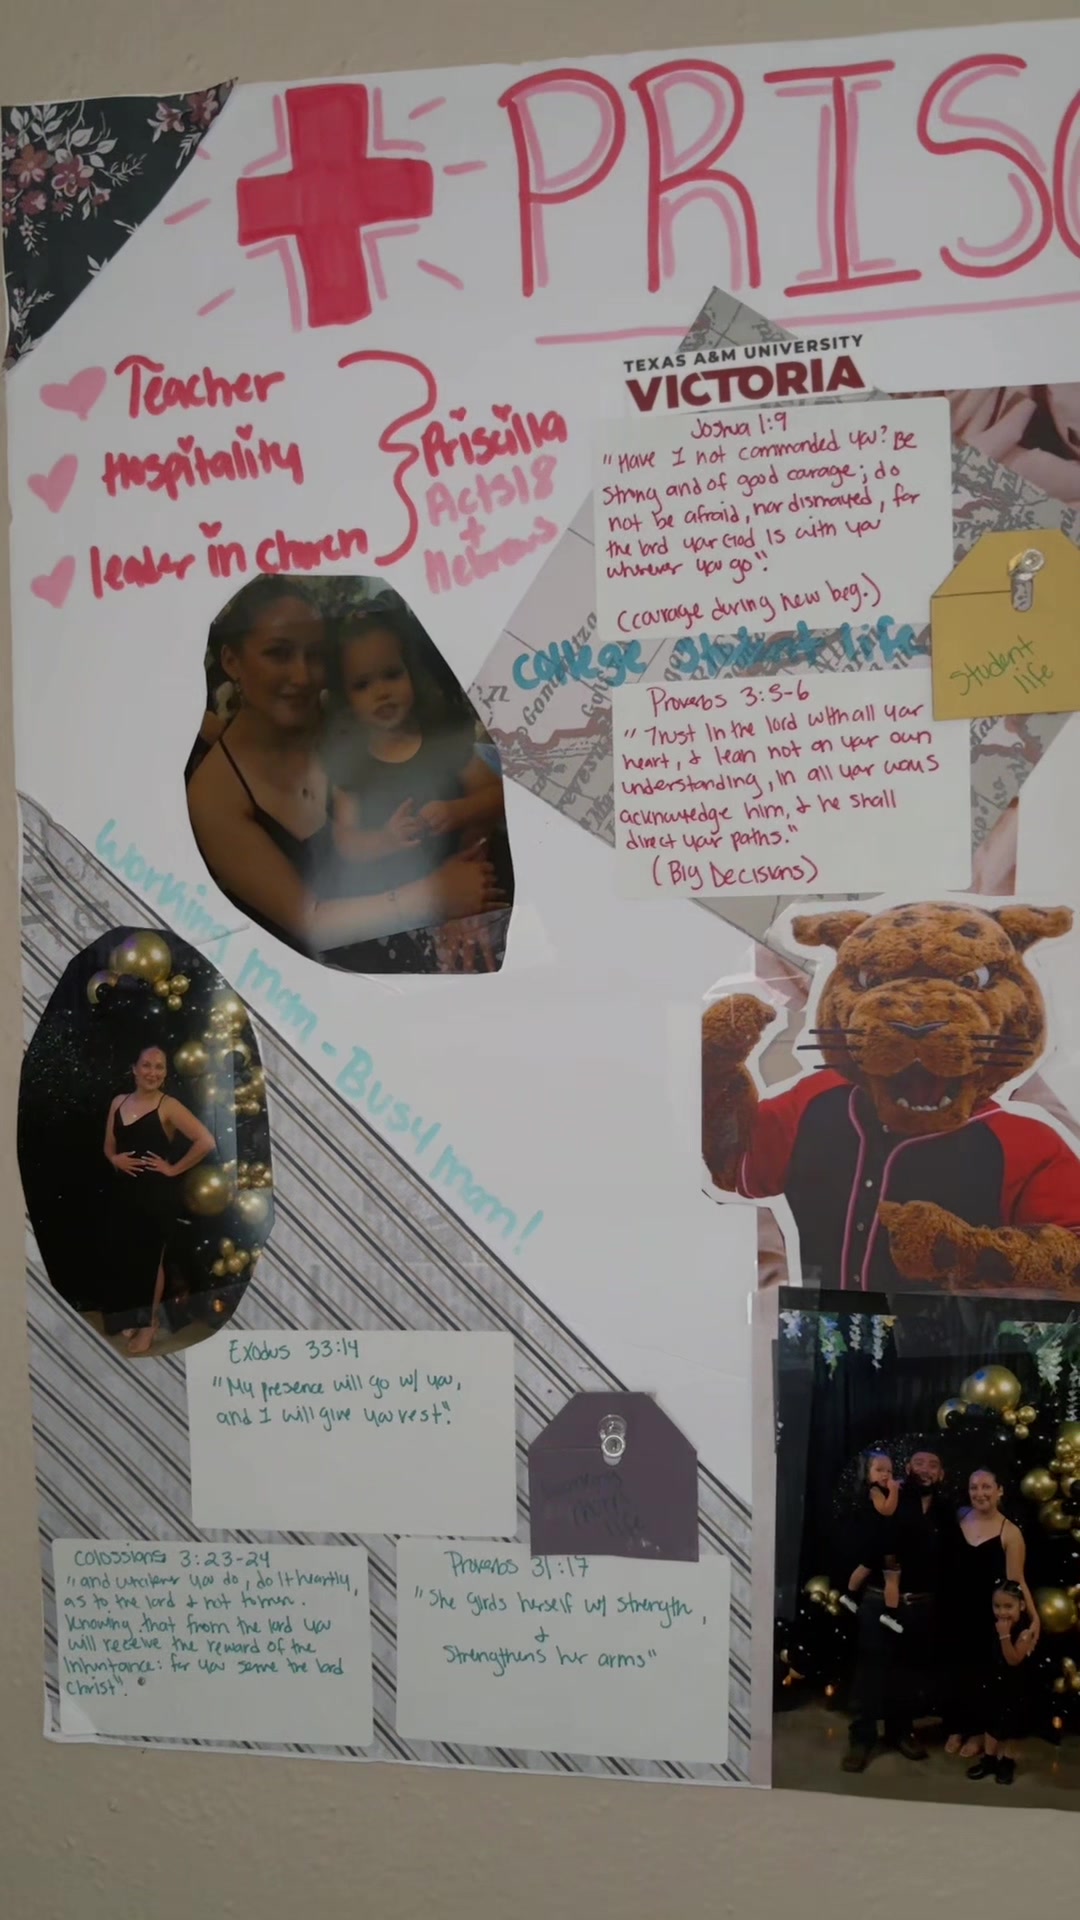 PRISC
Teacher
Hospitality
leader in church
Priscilla
Acts 18
+
Hebrews
TEXAS A&M UNIVERSITY
VICTORIA
Joshua 1:9
"Have I not commanded you? Be
strong and of good carage; do
not be afraid, nor dismayed, for
the lord your God is with you
wherever you go".
(courage during new beg.)
college student life
student
life
Proverbs 3:5-6
"Trust in the lord with all your
heart, & lean not on your own
understanding, in all your ways
acknowledge him, & he shall
direct your paths."
(Big Decisions)
working mom - Busy mom!
Exodus 33:14
"My presence will go w/ you,
and I will give you rest".
working
mom
life
Colossians 3:23-24
"and whatever you do, do it heartly,
as to the lord & not to men.
Knowing that from the lord you
will receive the reward of the
Inheritance: for you serve the lord
Christ".
Proverbs 31:17
"She girds herself w/ strength,
&
Strengthens her arms"